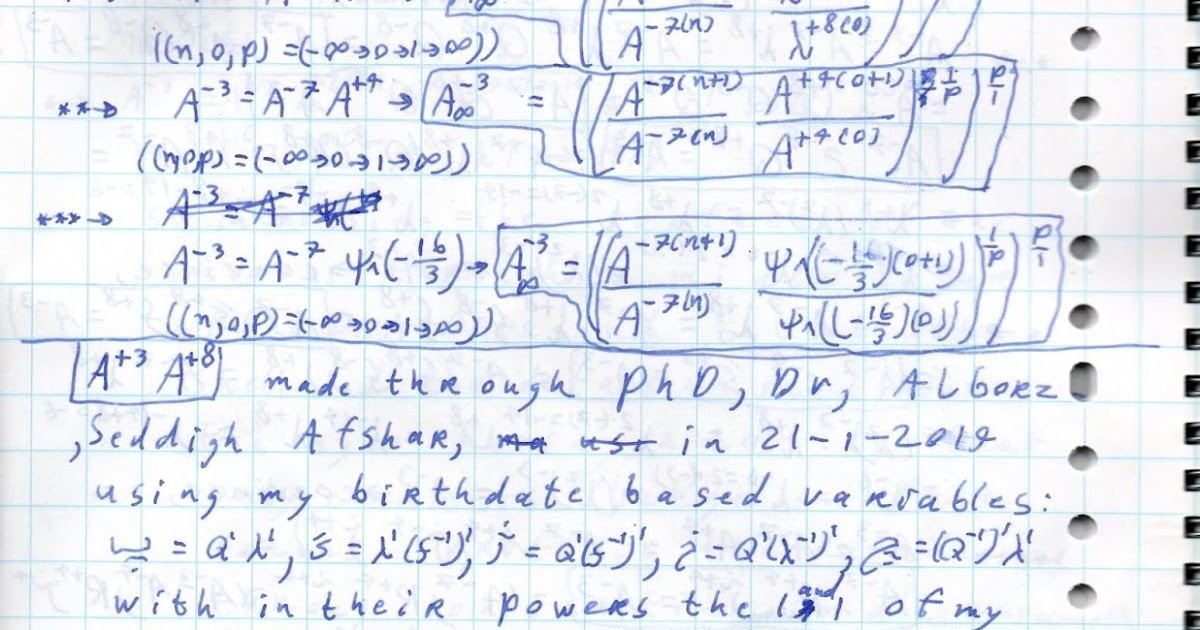 A^-7(n) λ^+8(0)
((n,0,p)=(-∞→0→1→∞))
**→ A^-3 = A^-7 A^+4 → A∞^-3 = ((A^-7(n+1)/A^-7(n) A^+4(0+1)/A^+4(0))^1/p)^p/1
((n,0,p)=(-∞→0→1→∞))
***→ A^-3 = A^-7
A^-3 = A^-7 ψ1(-16/3) → A∞^-3 = ((A^-7(n+1)/A^-7(n) ψ1((-16/3)(0+1))/ψ1((-16/3)(0)))^1/p)^p/1
((n,0,p)=(-∞→0→1→∞))
A^+3 A^+8 made through PhD, Dr, ALborz
,Seddigh Afshar, in 21-1-2019
using my birthdate based variables:
= Q'λ', = λ'(s^-1)', = Q'(s^-1)', = Q'(λ^-1)', = (Q^-1)'λ'
with in their powers the 1 and 1 of my